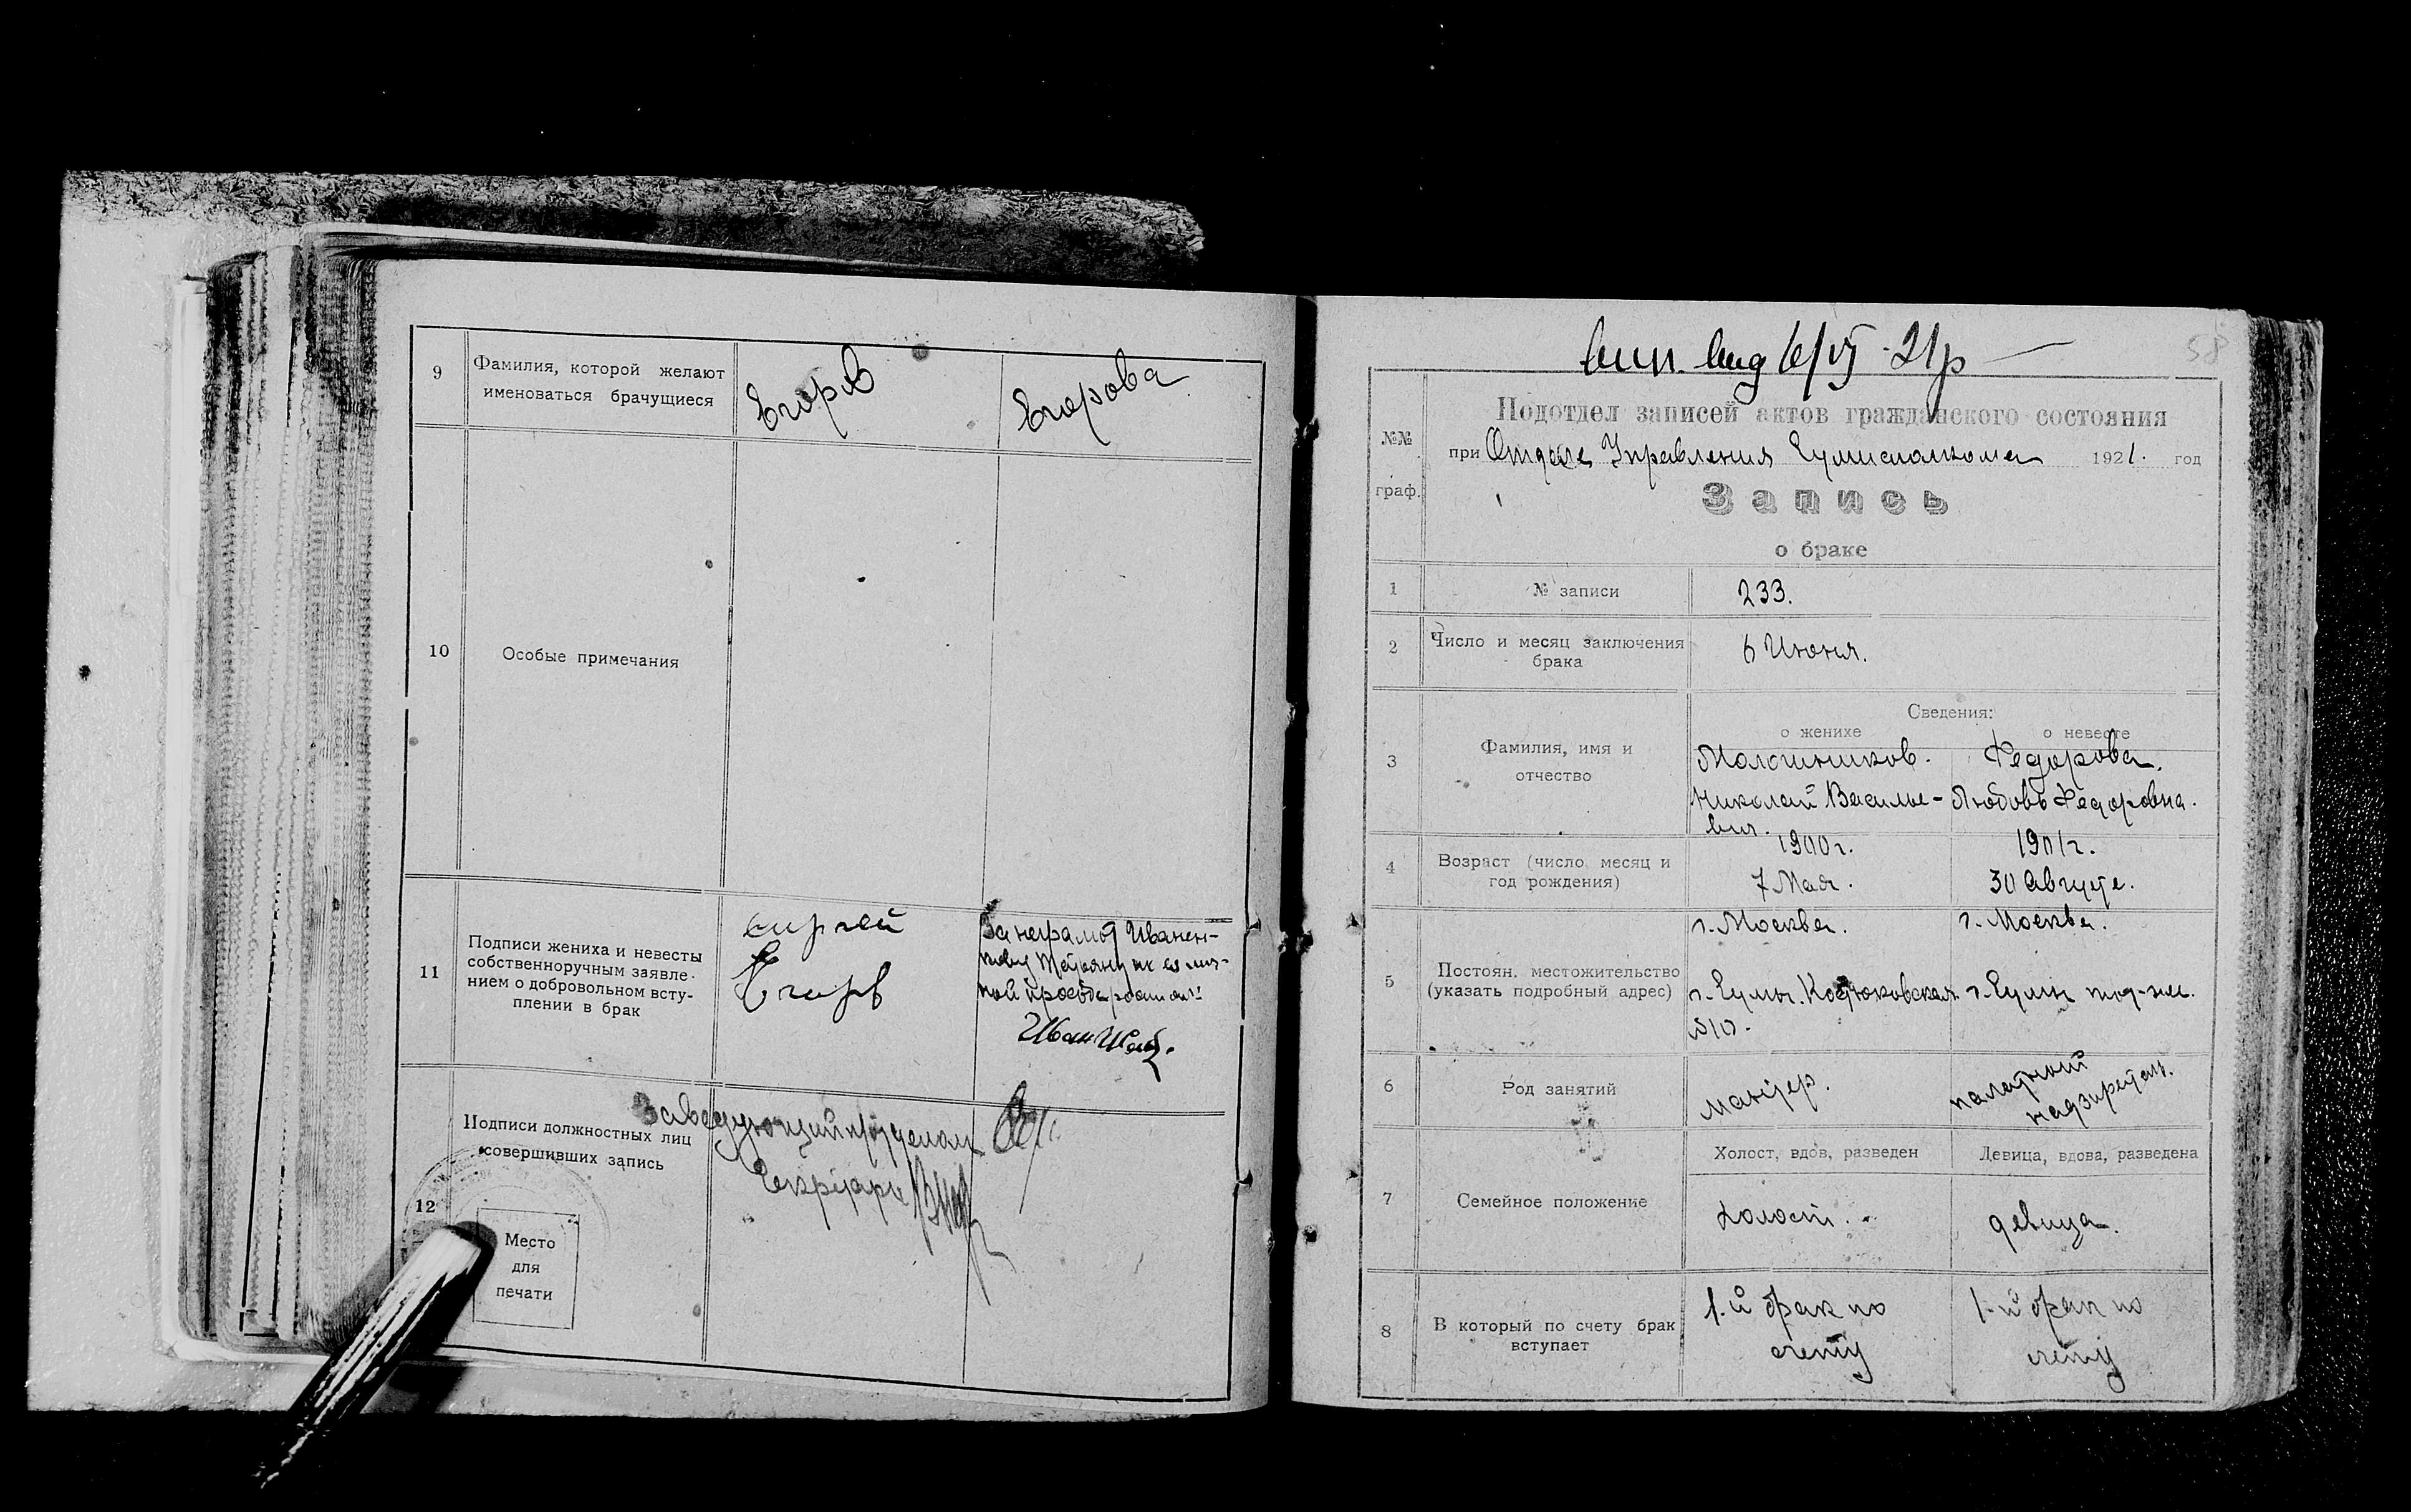 9
Фамилия, которой желают
именоваться брачущиеся
Егоров
Егорова
10
Особые примечания
11
Подписи жениха и невесты
собственноручным заявле-
нием о добровольном всту-
плении в брак
Сергей
Егоров
За неграмот Иванен-
кову Татьяну по ея лич-
ной просьбе
Иван
12
Подписи должностных лиц
совершивших запись
Заведующий п/отделом
Секретарь
Место
для
печати
58
вид 6/VI-21р
№№
граф.
Подотдел записей актов гражданского состояния
при Отделе Управления Сумисполкома 1921. год
Запись
о браке
1
№ записи
233.
2
Число и месяц заключения
брака
6 Июня.
3
Фамилия, имя и
отчество
Сведения:
о женихе
о невесте
Федорова.
Николай Василье-
вич.
Любовь Федоровна.
4
Возраст (число месяц и
год рождения)
1900г.
7 Мая.
1901г.
30 Августа.
5
Постоян. местожительство
(указать подробный адрес)
г. Москва.
г. Сумы.
г. Москва.
г. Сумы
6
Род занятий
палатный
надзират.
7
Семейное положение
Холост, вдов, разведен
Девица, вдова, разведена
холост.
девица.
8
В который по счету брак
вступает
1-й брак по
счету
1-й брак по
счету